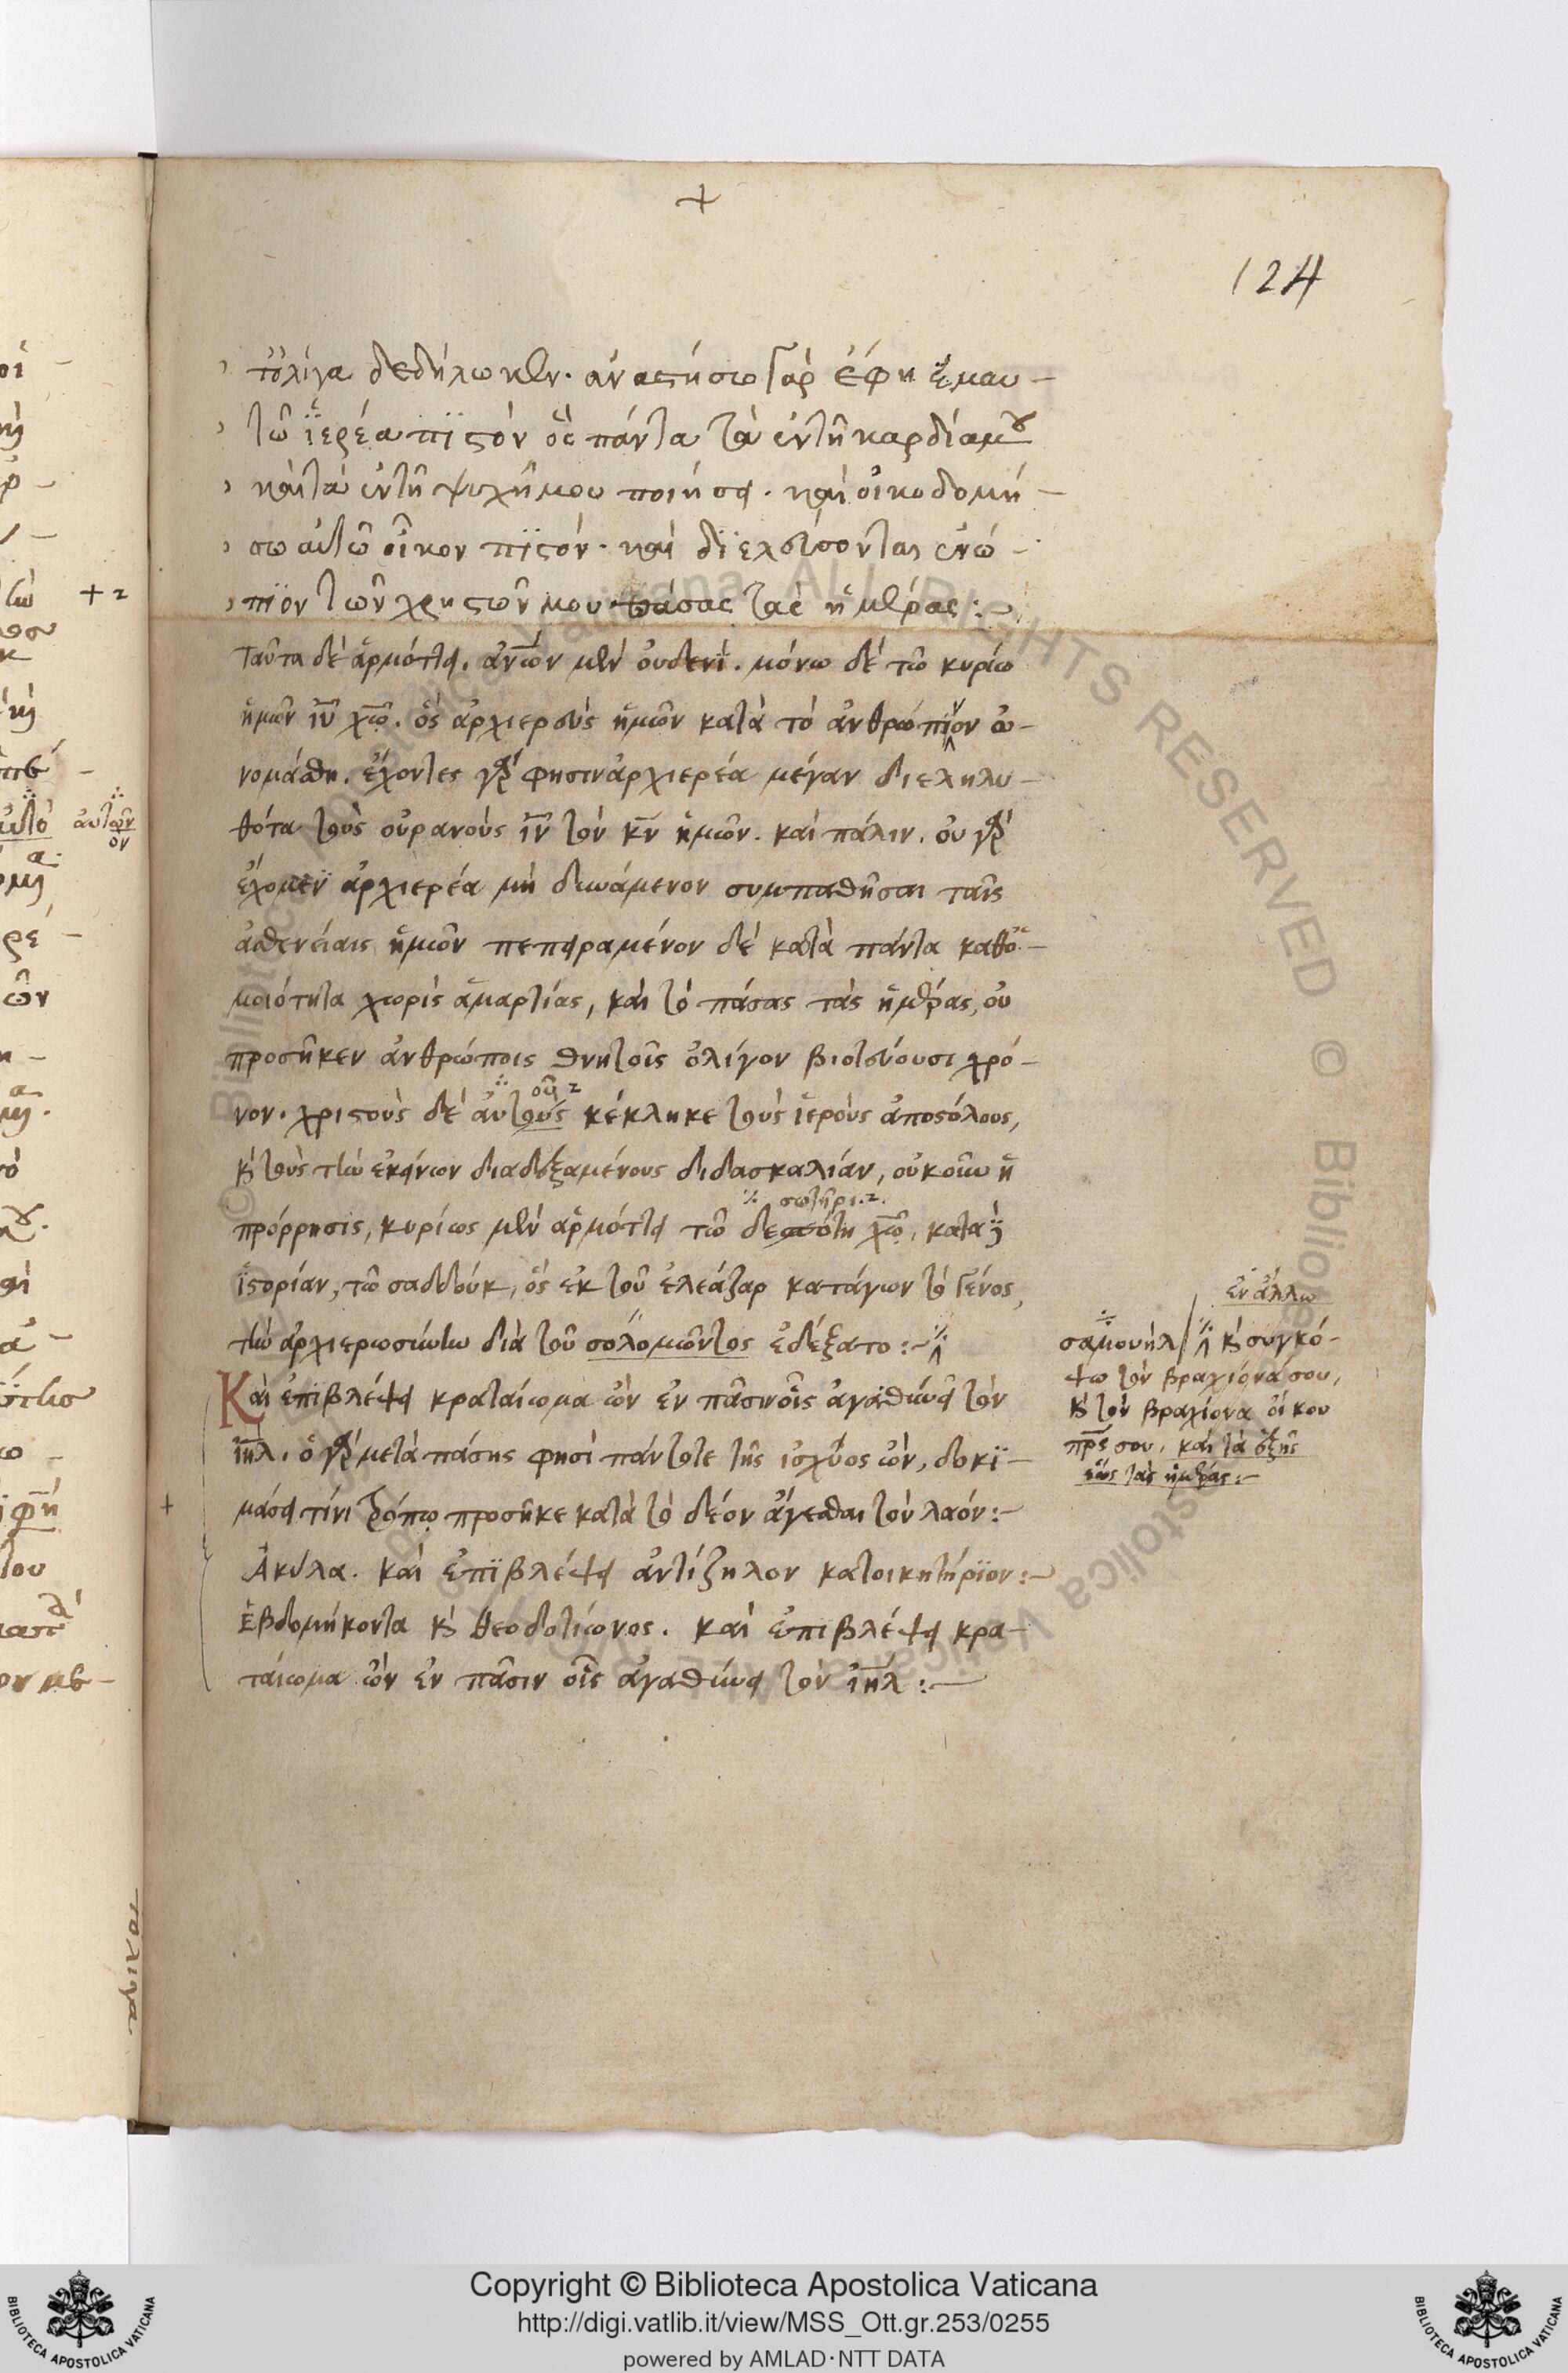 +
124
τ᾽ ὀλίγα δεδήλωκεν. ἀναστήσω γὰρ ἔφη ἐμαυ-
τῶ ἱερέα πιστὸν ὃς πάντα τὰ ἐν τῆ καρδία μου
καὶ τὰ ἐν τῆ ψυχῆ μου ποιήσει. καὶ οἰκοδομή-
σω αὐτῶ οἶκον πιστόν. καὶ διελεύσονται ἐνώ-
πιον τῶν χρηστῶν μου πάσας τὰς ἡμέρας:
ταῦτα δὲ ἁρμόττει. ἀνῶν μὲν οὐδενὶ. μόνω δὲ τῶ κυρίω
ἡμῶν ἰῦ χῶ. ὃς ἀρχιερεὺς ἡμῶν κατὰ τὸ ἀνθρώπινον ὠ-
νομάσθη. ἔχοντες γὰρ φησιν ἀρχιερέα μέγαν διεληλυ-
θότα τοὺς οὐρανοὺς ἰν τὸν κν ἡμῶν. καὶ πάλιν. οὐ γὰρ
ἔχομεν ἀρχιερέα μὴ δυνάμενον συμπαθῆσαι ταῖς
ἀσθενείαις ἡμῶν πεπειραμένον δὲ κατὰ πάντα καθ᾽ ὁ-
μοιότητα χωρὶς ἁμαρτίας, καὶ τὸ πάσας τὰς ἡμέρας, οὐ
προσῆκεν ἀνθρώποις θνητοῖς ὀλίγον βιοτεύουσι χρό-
νον. χριστοὺς δὲ αὐτοὺς κέκληκε τοὺς ἱεροὺς ἀποστόλους,
κὶ τοὺς τὴν ἐκείνων διαδεξαμένους διδασκαλίαν, οὐκοῦν ἡ
σωτῆρι.
πρόρρησις, κυρίως μὲν ἁρμόττει τῶ δεσπότη χῶ, κατὰ δὲ
ἱστορίαν, τῶ σαδδοὺκ, ὃς ἐκ τοῦ ἐλεάζαρ κατάγων τὸ γένος,
τὴν ἀρχιερωσύνην διὰ τοῦ σολομῶντος ἐδέξατο:
Καὶ ἐπιβλέψει κραταίωμα ὢν ἐν πᾶσιν οἷς ἀγαθύνει τὸν
ἰηλ. ὁ γὰρ μετὰ πάσης φησὶ πάντοτε τῆς ἰσχύος ὢν, δοκι-
μάσει τίνι τρόπω προσῆκε κατὰ τὸ δέον ἄγεσθαι τὸν λαόν:
Ἀκύλα. καὶ ἐπιβλέψει ἀντίζηλον κατοικητήριον:
Ἑβδομήκοντα κὶ θεοδοτίωνος. καὶ ἐπιβλέψει κρα-
ταίωμα ὢν ἐν πᾶσιν οἷς ἀγαθύνει τὸν ἰηλ:
ἐν ἄλλω
σαμουὴλ κὶ συγκό-
ψω τὸν βραχίονά σου,
κὶ τὸν βραχίονα οἴκου
πρς σου. καὶ τὰ ἑξῆς
ἕως τὰς ἡμέρας:
τολιγα
Copyright © Biblioteca Apostolica Vaticana
http://digi.vatlib.it/view/MSS_Ott.gr.253/0255
powered by AMLAD·NTT DATA
BIBLIOTECA APOSTOLICA VATICANA
BIBLIOTECA APOSTOLICA VATICANA